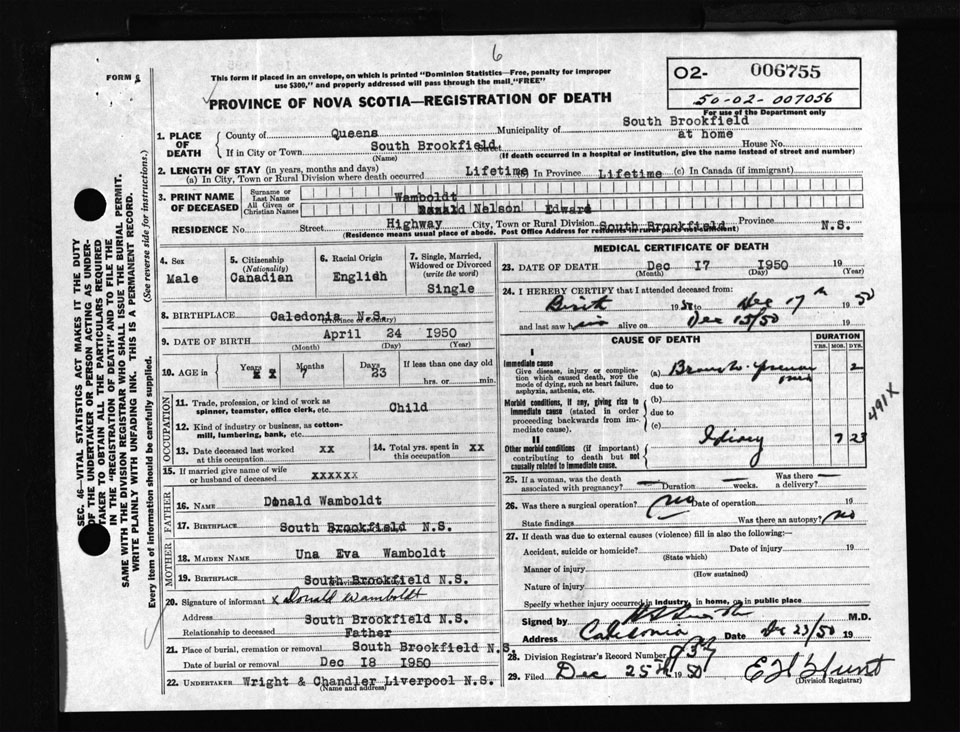 6
FORM
This form if placed in an envelope, on which is printed "Dominion Statistics—Free, penalty for improper
use $300," and properly addressed will pass through the mail "FREE"
PROVINCE OF NOVA SCOTIA—REGISTRATION OF DEATH
02- 006755
50-02-007056
For use of the Department only
1. PLACE OF DEATH
County of Queens Municipality of South Brookfield
If in City or Town South Brookfield Street at home House No.
(Name) (If death occurred in a hospital or institution, give the name instead of street and number)
2. LENGTH OF STAY (in years, months and days)
(a) In City, Town or Rural Division where death occurred Lifetime (b) In Province Lifetime (c) In Canada (if immigrant)
3. PRINT NAME OF DECEASED
Surname or Last Name Wamboldt
All Given or Christian Names Nelson Edward
RESIDENCE No. Street Highway City, Town or Rural Division South Brookfield Province N.S.
(Residence means usual place of abode. Post Office Address for residents in rural
4. Sex Male
5. Citizenship (Nationality) Canadian
6. Racial Origin English
7. Single, Married, Widowed or Divorced (write the word) Single
8. BIRTHPLACE Caledonia N.S.
(Province or Country)
9. DATE OF BIRTH April 24 1950
(Month) (Day) (Year)
10. AGE in Years x x Months 7 Days 23 If less than one day old hrs. or min.
OCCUPATION
11. Trade, profession, or kind of work as spinner, teamster, office clerk, etc. Child
12. Kind of industry or business, as cotton-mill, lumbering, bank, etc.
13. Date deceased last worked at this occupation xx
14. Total yrs. spent in this occupation xx
15. If married give name of wife or husband of deceased xxxxxx
FATHER
16. NAME Donald Wamboldt
17. BIRTHPLACE South Brookfield N.S.
MOTHER
18. MAIDEN NAME Una Eva Wamboldt
19. BIRTHPLACE South Brookfield N.S.
20. Signature of informant x Donald Wamboldt
Address South Brookfield N.S.
Relationship to deceased Father
21. Place of burial, cremation or removal South Brookfield N.S.
Date of burial or removal Dec 18 1950
22. UNDERTAKER Wright & Chandler Liverpool N.S.
(Name and address)
MEDICAL CERTIFICATE OF DEATH
23. DATE OF DEATH Dec 17 1950 19
(Month) (Day) (Year)
24. I HEREBY CERTIFY that I attended deceased from:
Birth 19 50 to Dec 17th 19 50
and last saw him alive on Dec 15/50 19
CAUSE OF DEATH
DURATION
YRS. MOS. DYS.
I
Immediate cause
Give disease, injury or complication which caused death, not the mode of dying, such as heart failure, asphyxia, asthenia, etc.
(a) 2
due to
Morbid conditions, if any, giving rise to immediate cause (stated in order proceeding backwards from immediate cause).
(b)
due to
(c)
II
Other morbid conditions (if important) contributing to death but not causally related to immediate cause.
Idiocy 7 23
491X
25. If a woman, was the death associated with pregnancy? — Duration — weeks. Was there a delivery? —
26. Was there a surgical operation? no Date of operation 19
State findings Was there an autopsy? no
27. If death was due to external causes (violence) fill in also the following:—
Accident, suicide or homicide? Date of injury 19
(State which)
Manner of injury
(How sustained)
Nature of injury
Specify whether injury occurred in industry, in home, or in public place
Signed by M.D.
Address Caledonia Date Dec 23/50 19
28. Division Registrar's Record Number
29. Filed Dec 25th 1950 E H Hunt
(Division Registrar)
SEC. 46—VITAL STATISTICS ACT MAKES IT THE DUTY
OF THE UNDERTAKER OR PERSON ACTING AS UNDER-
TAKER TO OBTAIN ALL THE PARTICULARS REQUIRED
IN THE "REGISTRATION OF DEATH" AND TO FILE THE
SAME WITH THE DIVISION REGISTRAR WHO SHALL ISSUE THE BURIAL PERMIT.
WRITE PLAINLY WITH UNFADING INK. THIS IS A PERMANENT RECORD.
Every item of information should be carefully supplied. (See reverse side for instructions.)